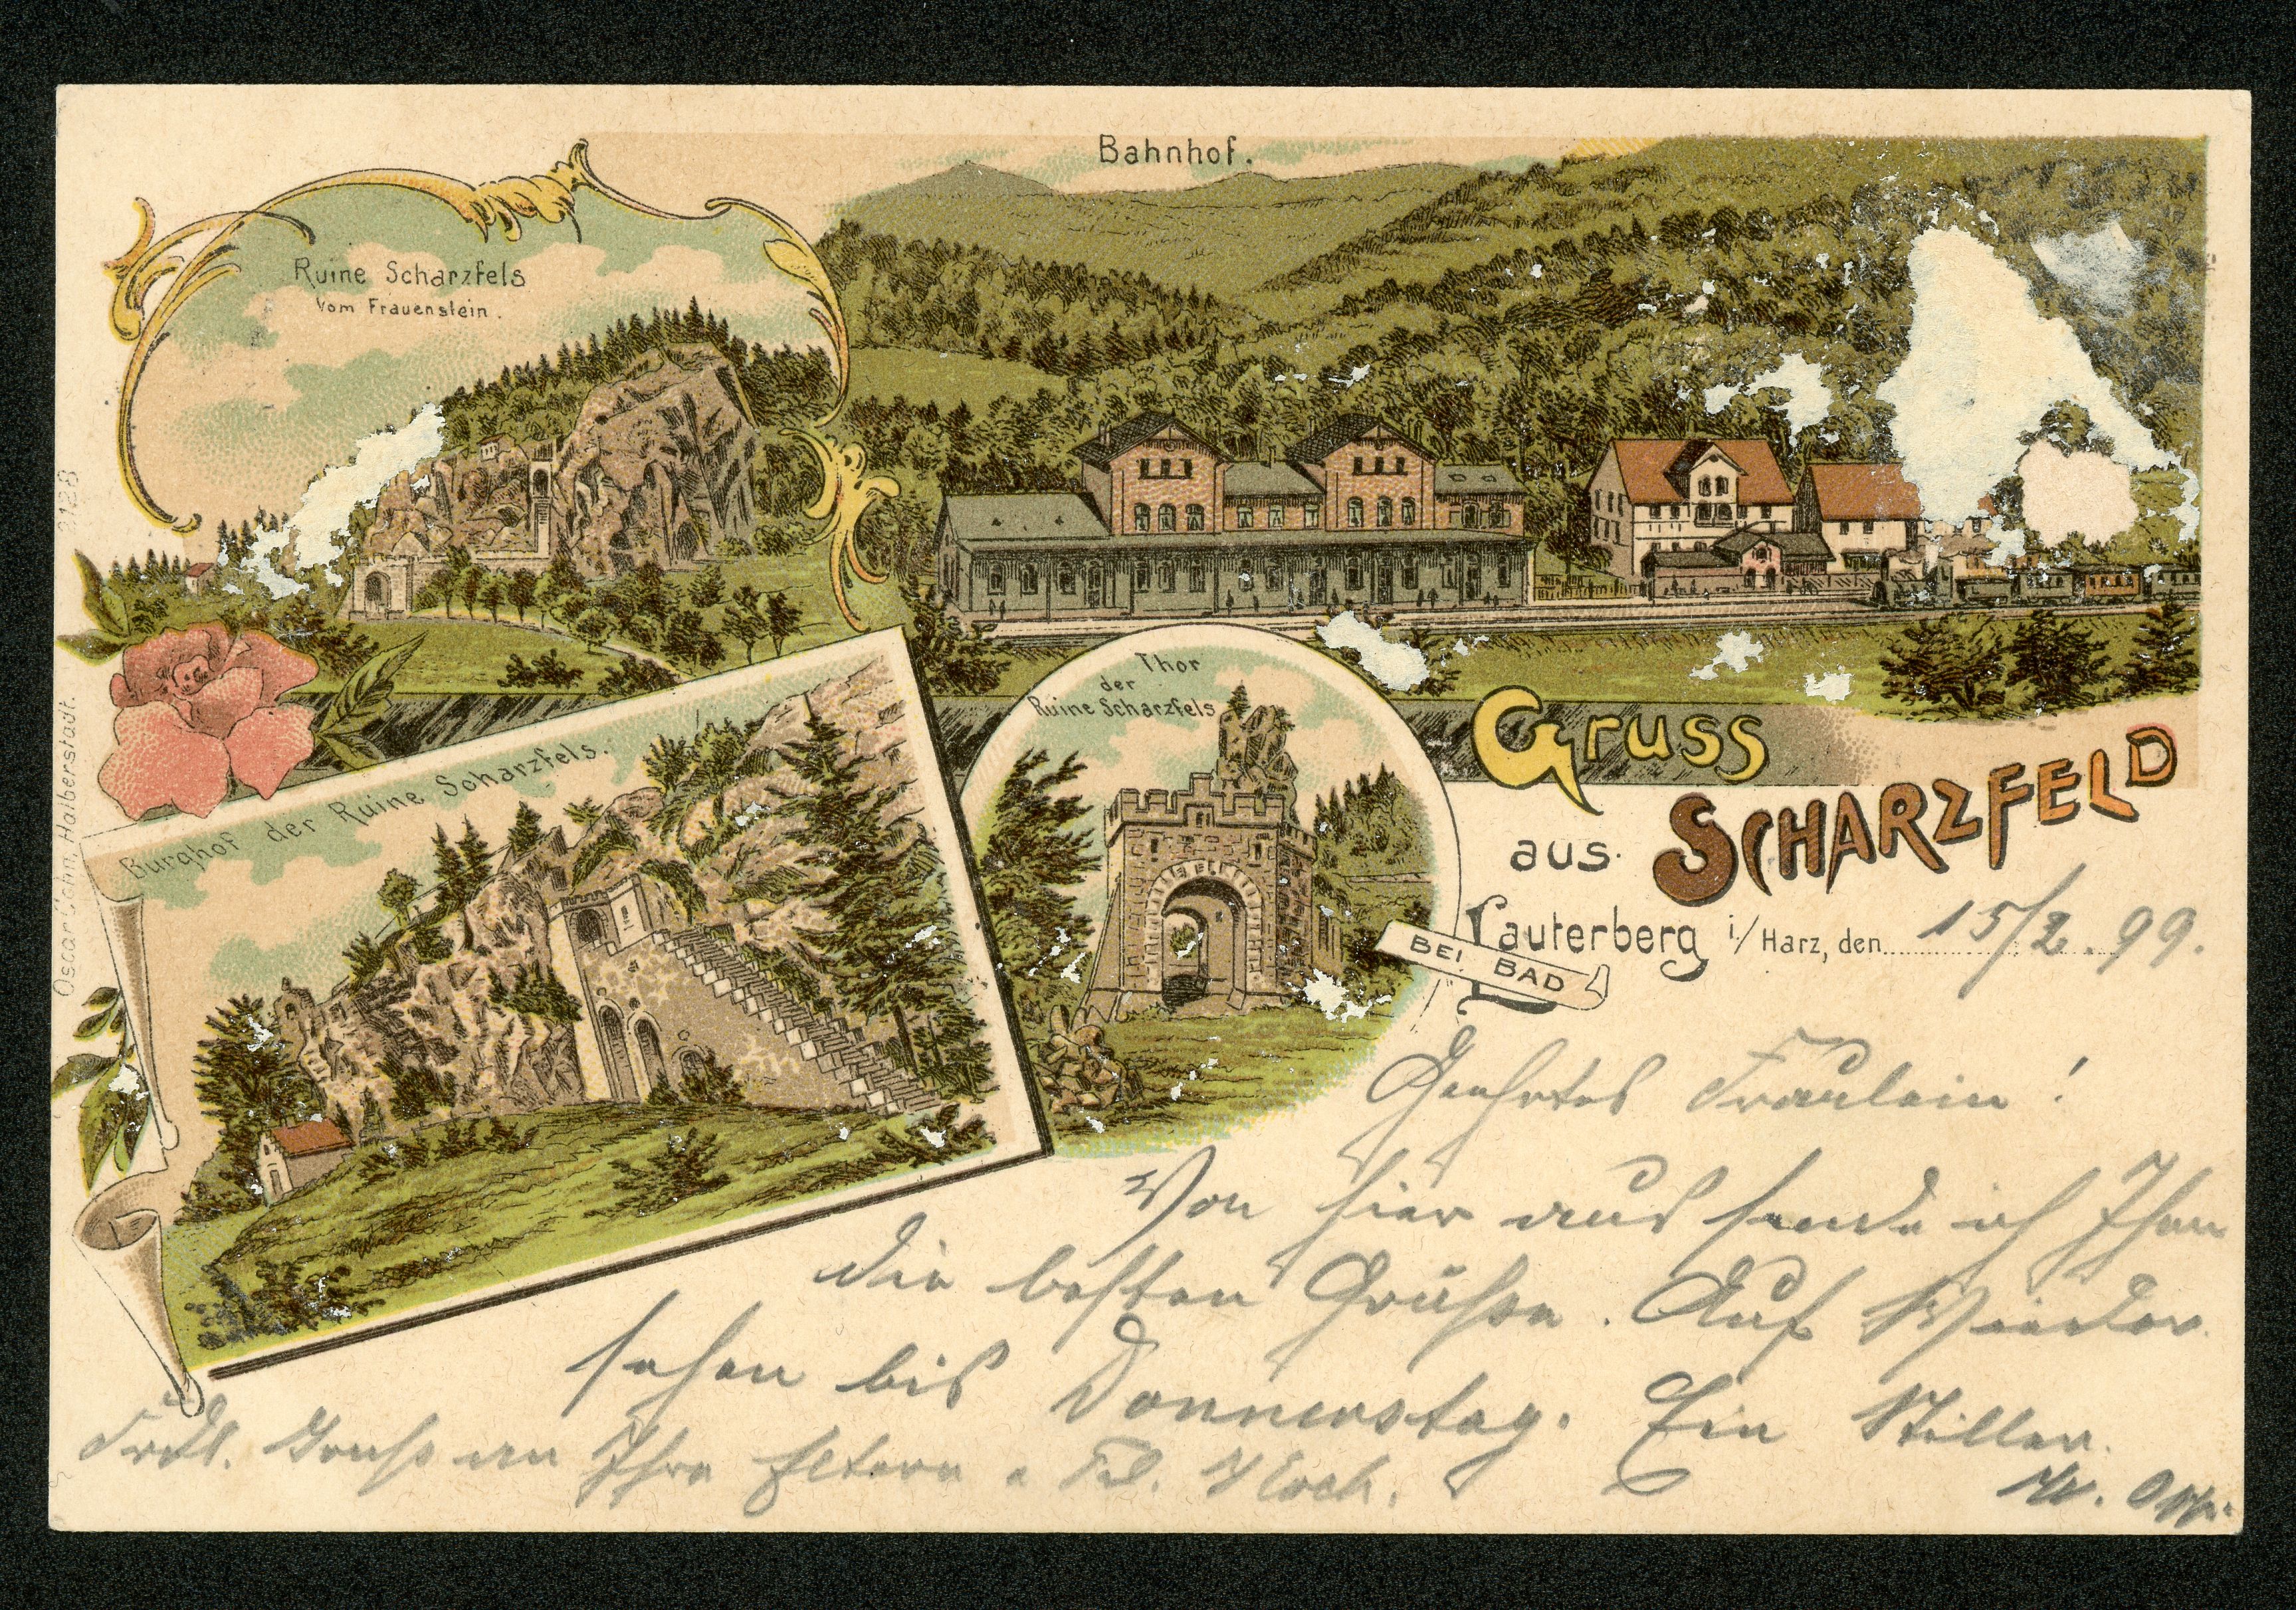 Bahnhof.
Ruine Scharzfels
Vom Frauenstein.
Thor
der
Ruine Scharzfels
Burghof der Ruine Scharzfels.
Gruss
aus SCHARZFELD
BEI BAD
Lauterberg i/Harz, den 15/2.99.
Geehrtes Fräulein!
Von hier aus sende ich Ihnen
die besten Grüße. Auf Wieder
sehen bis Donnerstag. Ein Stiller.
Frdl. Gruß an Ihre Eltern
2128
Halberstadt.